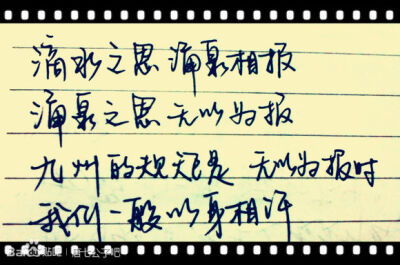 滴水之恩涌泉相报
涌泉之恩无以为报
九州的规矩是 无以为报时
我们一般以身相许
Bai贴吧 | 唐七公子吧